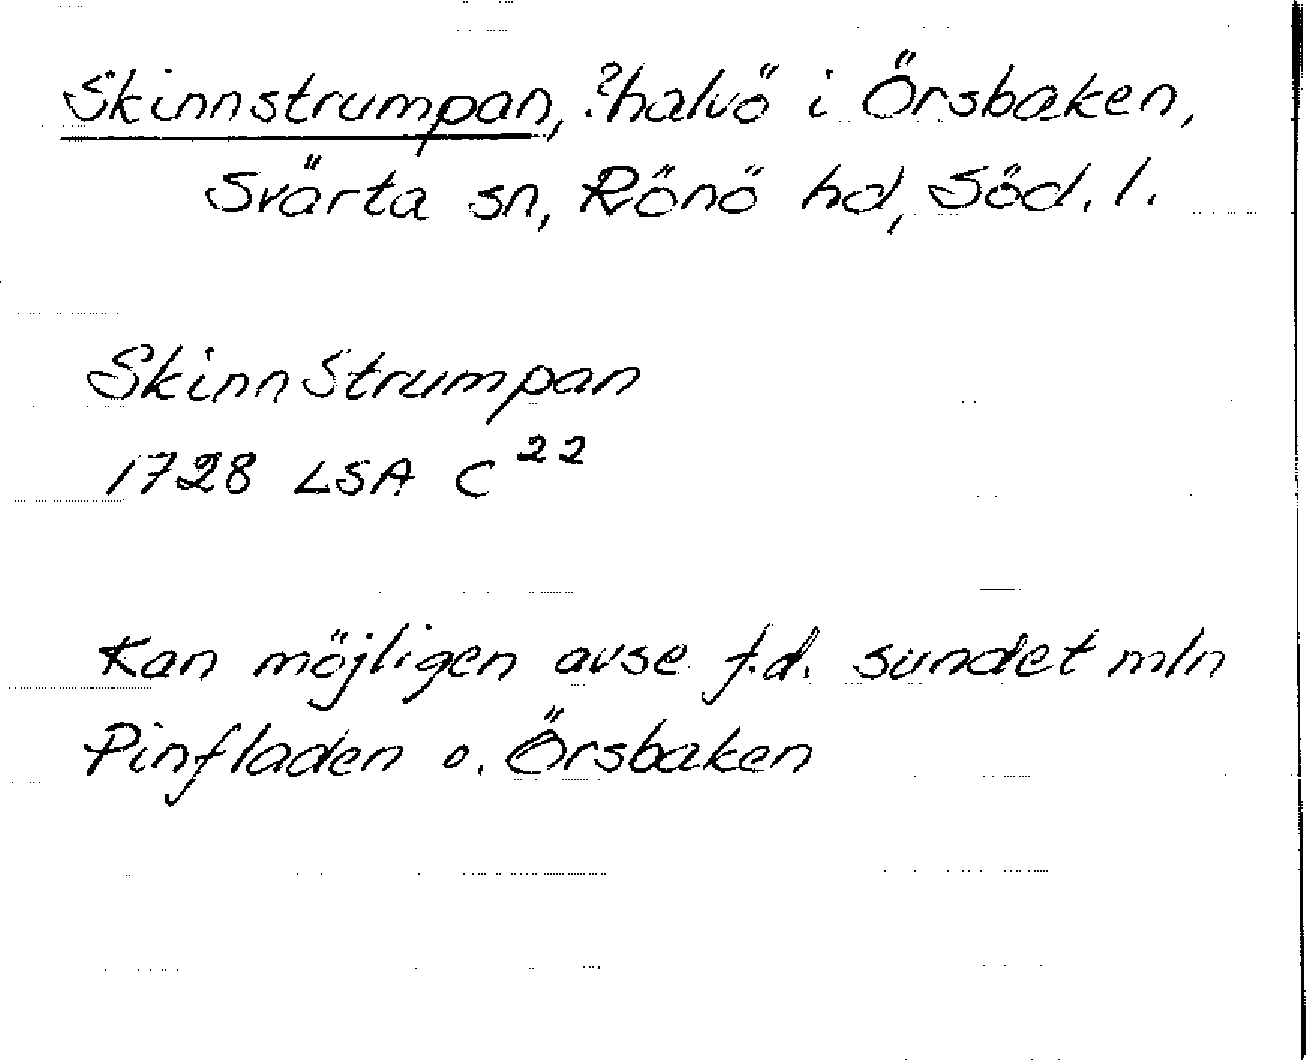 Skinnstrumpan, ?halvö i Örsbaken,
Svärta sn, Rönö hd, Söd. l.
SkinnStrumpan
1728 LSA C 22
Kan möjligen avse f.d. sundet mln
Pinfladen o. Örsbaken